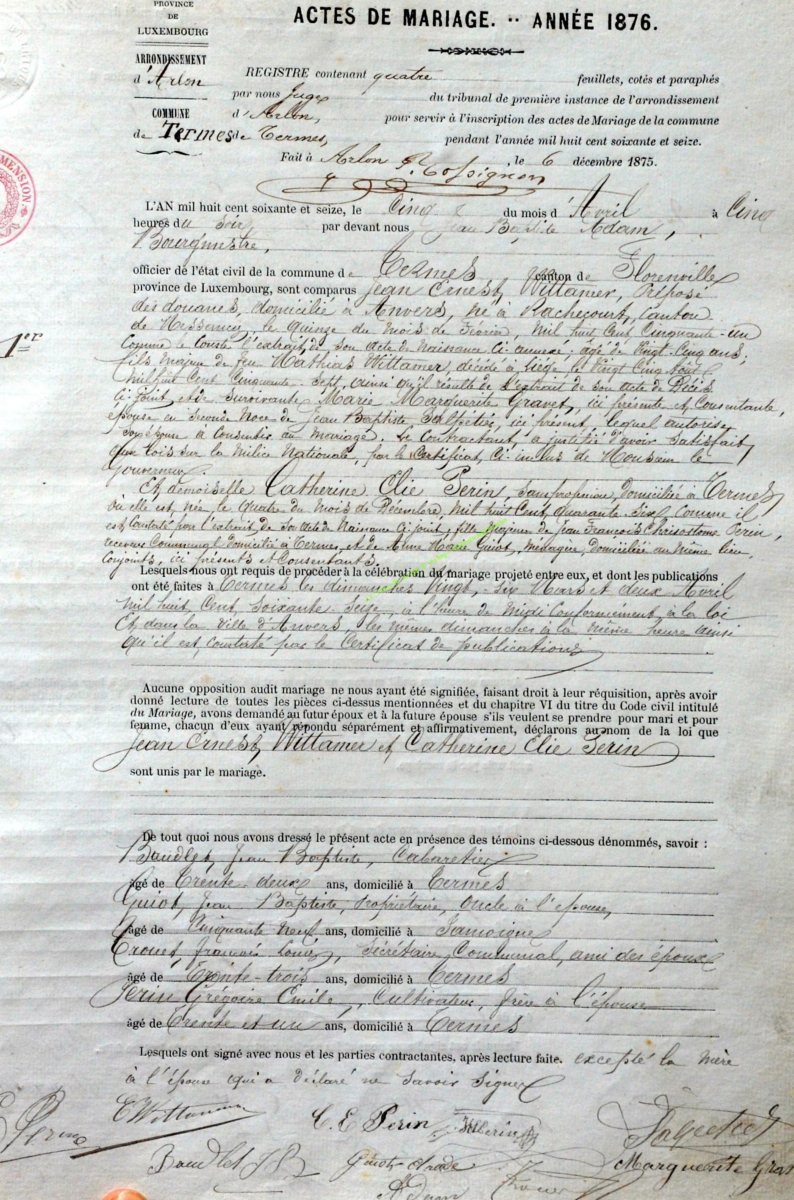 PROVINCE
DE
LUXEMBOURG
ARRONDISSEMENT
d'Arlon
COMMUNE
de Termes
ACTES DE MARIAGE. ·· ANNÉE 1876.
REGISTRE contenant quatre feuillets, cotés et paraphés
par nous Juge du tribunal de première instance de l'arrondissement
d'Arlon, pour servir à l'inscription des actes de Mariage de la commune
de Termes, pendant l'année mil huit cent soixante et seize.
Fait à Arlon, le 6 décembre 1875.
L'AN mil huit cent soixante et seize, le Cinq du mois d'Avril à Cinq
heures du soir par devant nous Jean Baptite Adam,
Bourgmestre,
officier de l'état civil de la commune de Termes canton de Florenville
province de Luxembourg, sont comparus Jean Ernest Wittamer, Préposé
des douanes, domicilié à Anvers, né à Rachecourt, Canton
de Messancy, le quinze du mois de Février, mil huit Cent Cinquante-un
1er
Comme le Conste l'extrait de son acte de Naissance Ci-annexé; âgé de Vingt-Cinq ans;
fils majeur de feu Mathias Wittamer, décédé à Liège le Vingt Cinq Août
mil huit Cent Cinquante-Sept, ainsi qu'il résulte de l'extrait de son acte de Décès
Ci-joint, et de Survivante Marie Marguerite Gravet, ici présente et Consentante,
épouse en Seconde Noce de Jean Baptiste, ici présent, lequel autorise
Son épouse à Consentir au mariage. Le Contractant a justifié d'avoir Satisfait
aux lois sur la Milice Nationale, par le Certificat Ci-inclus de Monsieur le
Gouverneur.
Et demoiselle Catherine Elie Perin, Sans profession, Domiciliée à Termes
où elle est née, le quatre du mois de Décembre, Mil huit Cent, quarante Six, Comme il
est Constaté par l'extrait de Son acte de Naissance Ci-joint, fille Majeure de Jean François Chrisostome Perin,
receveur Communal Domicilié à Termes, et de Marie Guiot, Ménagère, Domiciliée au Même lieu,
Conjoints, ici présents et Consentants.
Lesquels nous ont requis de procéder à la célébration du mariage projeté entre eux, et dont les publications
ont été faites à Termes les dimanches Vingt-Six Mars et deux Avril
Mil huit, Cent, Soixante Seize, à l'heure de Midi Conformément à la loi
Et dans la Ville d'Anvers, les mêmes dimanches à la même heure ainsi
qu'il est, Constaté par le Certificat de publications
Aucune opposition audit mariage ne nous ayant été signifiée, faisant droit à leur réquisition, après avoir
donné lecture de toutes les pièces ci-dessus mentionnées et du chapitre VI du titre du Code civil intitulé
du Mariage, avons demandé au futur époux et à la future épouse s'ils veulent se prendre pour mari et pour
femme, chacun d'eux ayant répondu séparément et affirmativement, déclarons au nom de la loi que
Jean Ernest, Wittamer et Catherine Elie Perin
sont unis par le mariage.
De tout quoi nous avons dressé le présent acte en présence des témoins ci-dessous dénommés, savoir :
Baudlet, Jean Baptiste, Cabaretier
âgé de Trente-deux ans, domicilié à Termes
Guiot, Jean Baptiste, Propriétaire, Oncle à l'épouse,
âgé de Cinquante Neuf ans, domicilié à Jamoigne
François Louis, Sécrétaire Communal, ami des époux
âgé de Trente-trois ans, domicilié à Termes
Perin Grégoire Emile, Cultivateur, frère à l'épouse
âgé de Trente et un ans, domicilié à Termes
Lesquels ont signé avec nous et les parties contractantes, après lecture faite. excepté la mère
à l'épouse qui a déclaré ne Savoir Signer
E Wittamer
C. E Perin
Perin
Baudlet J B
Marguerite